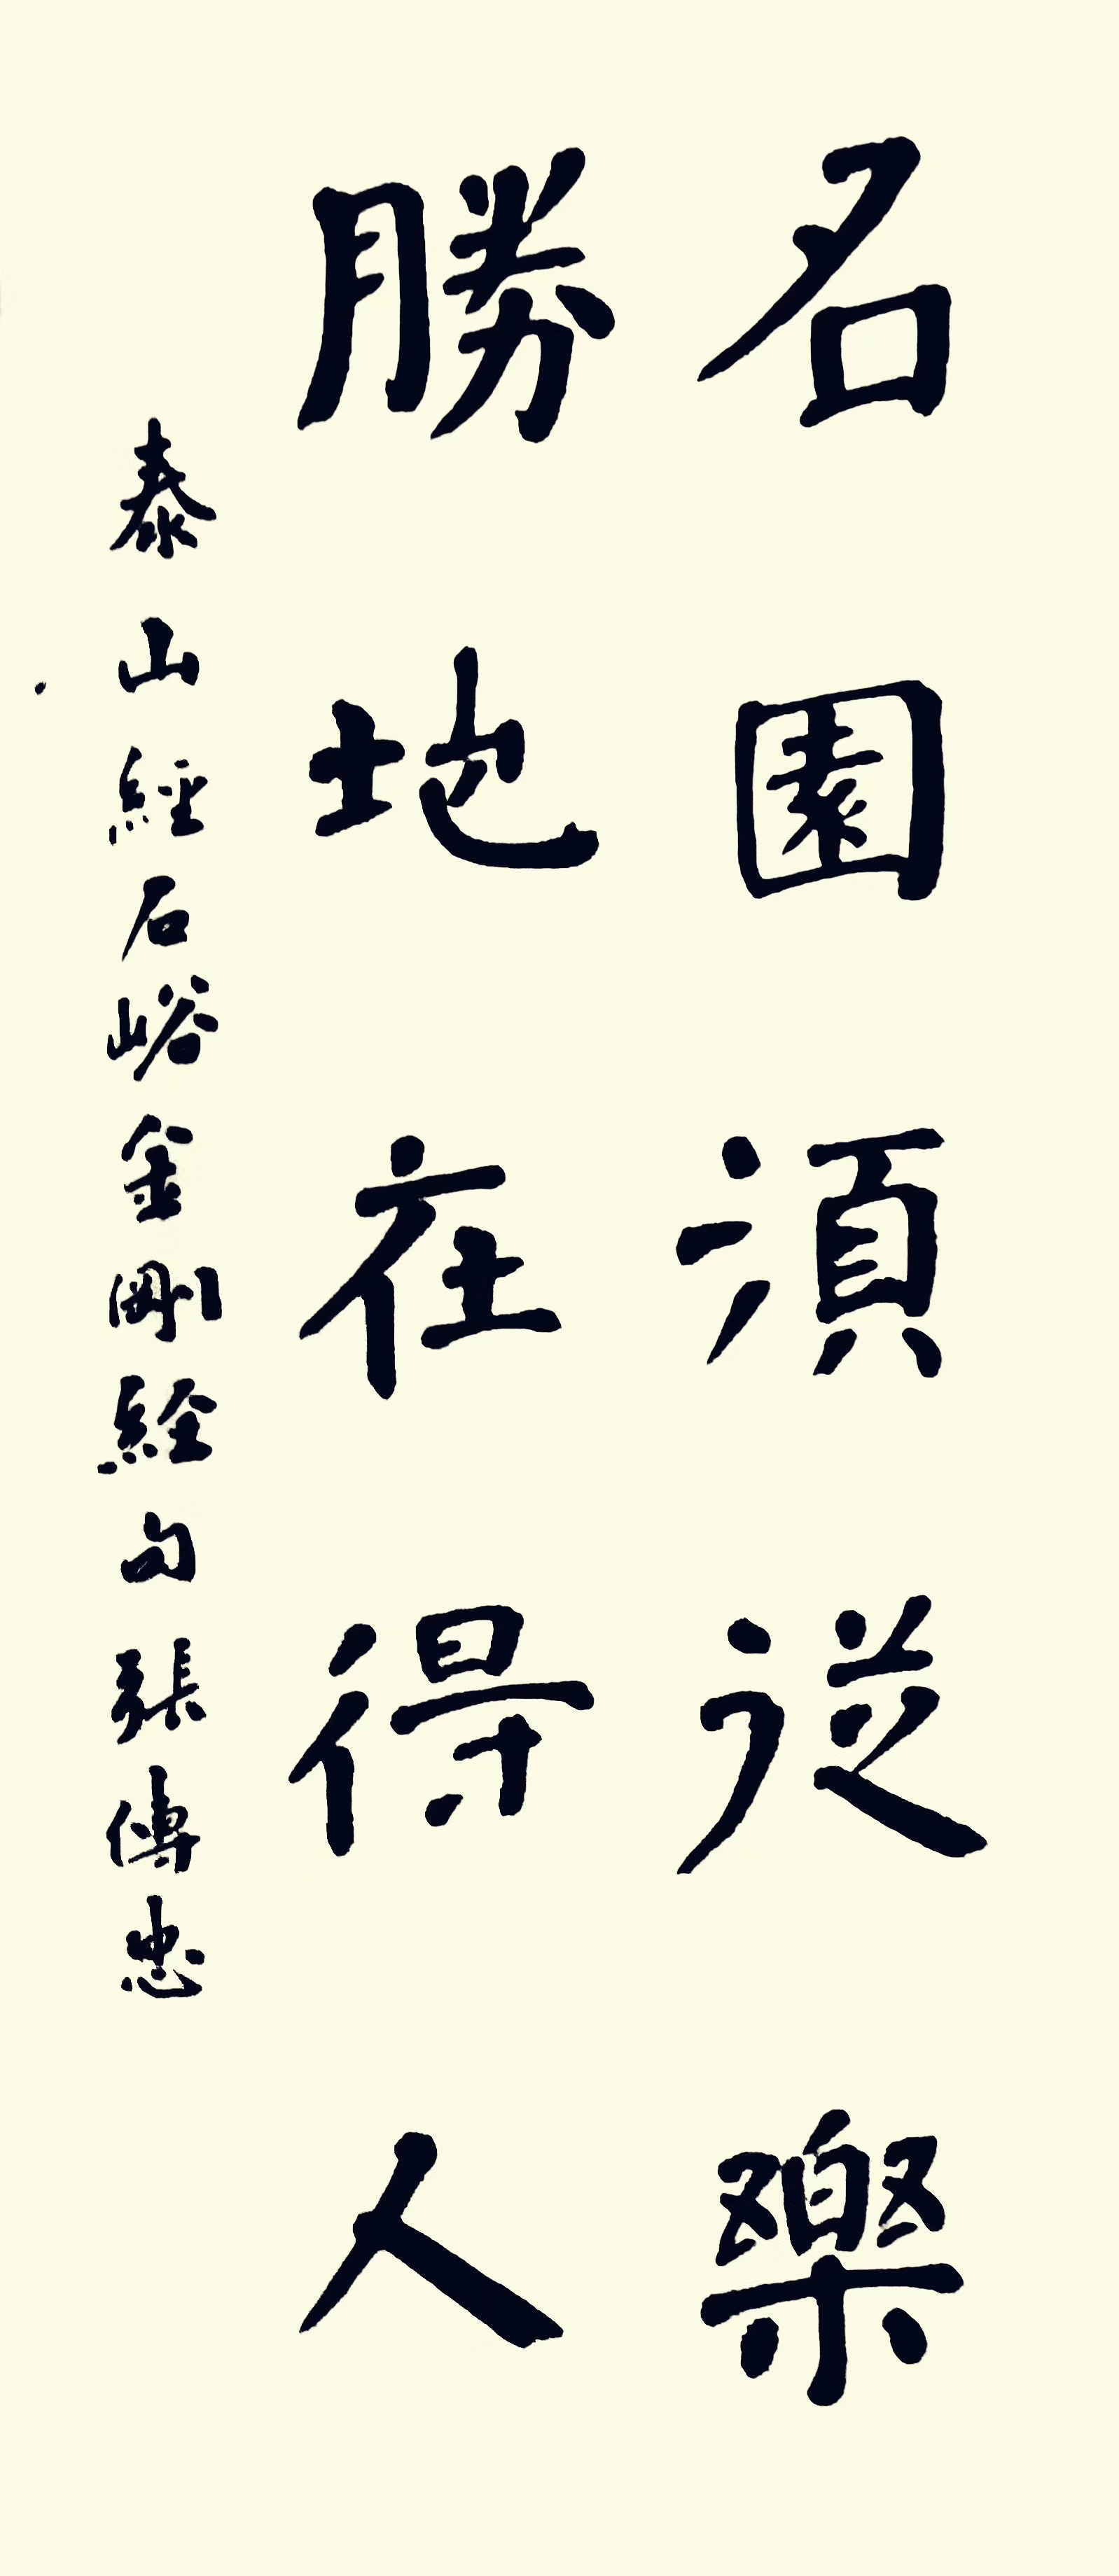 名園須從樂
勝地在得人
泰山經石峪金剛經句張傳忠